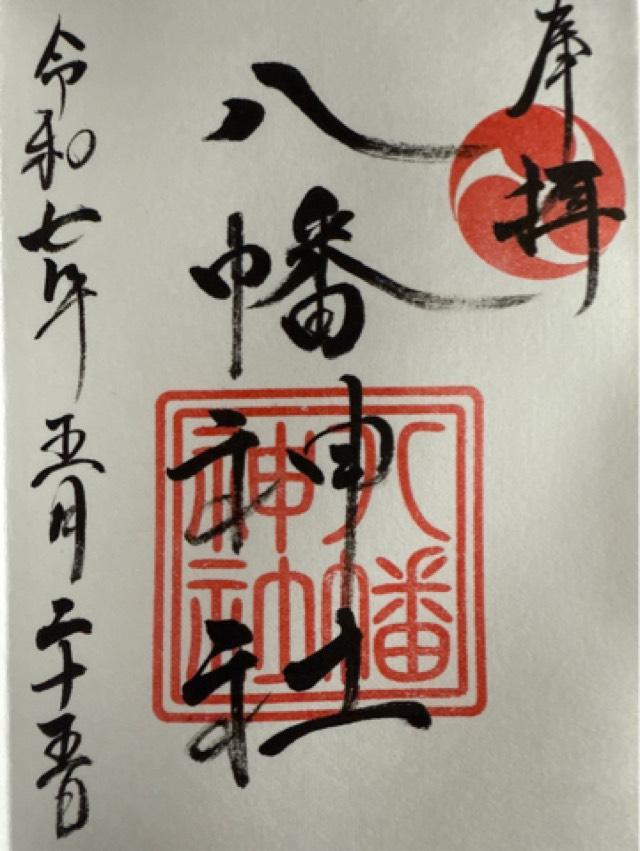 奉拝
八幡神社
八幡
神社
令和七年五月二十五日